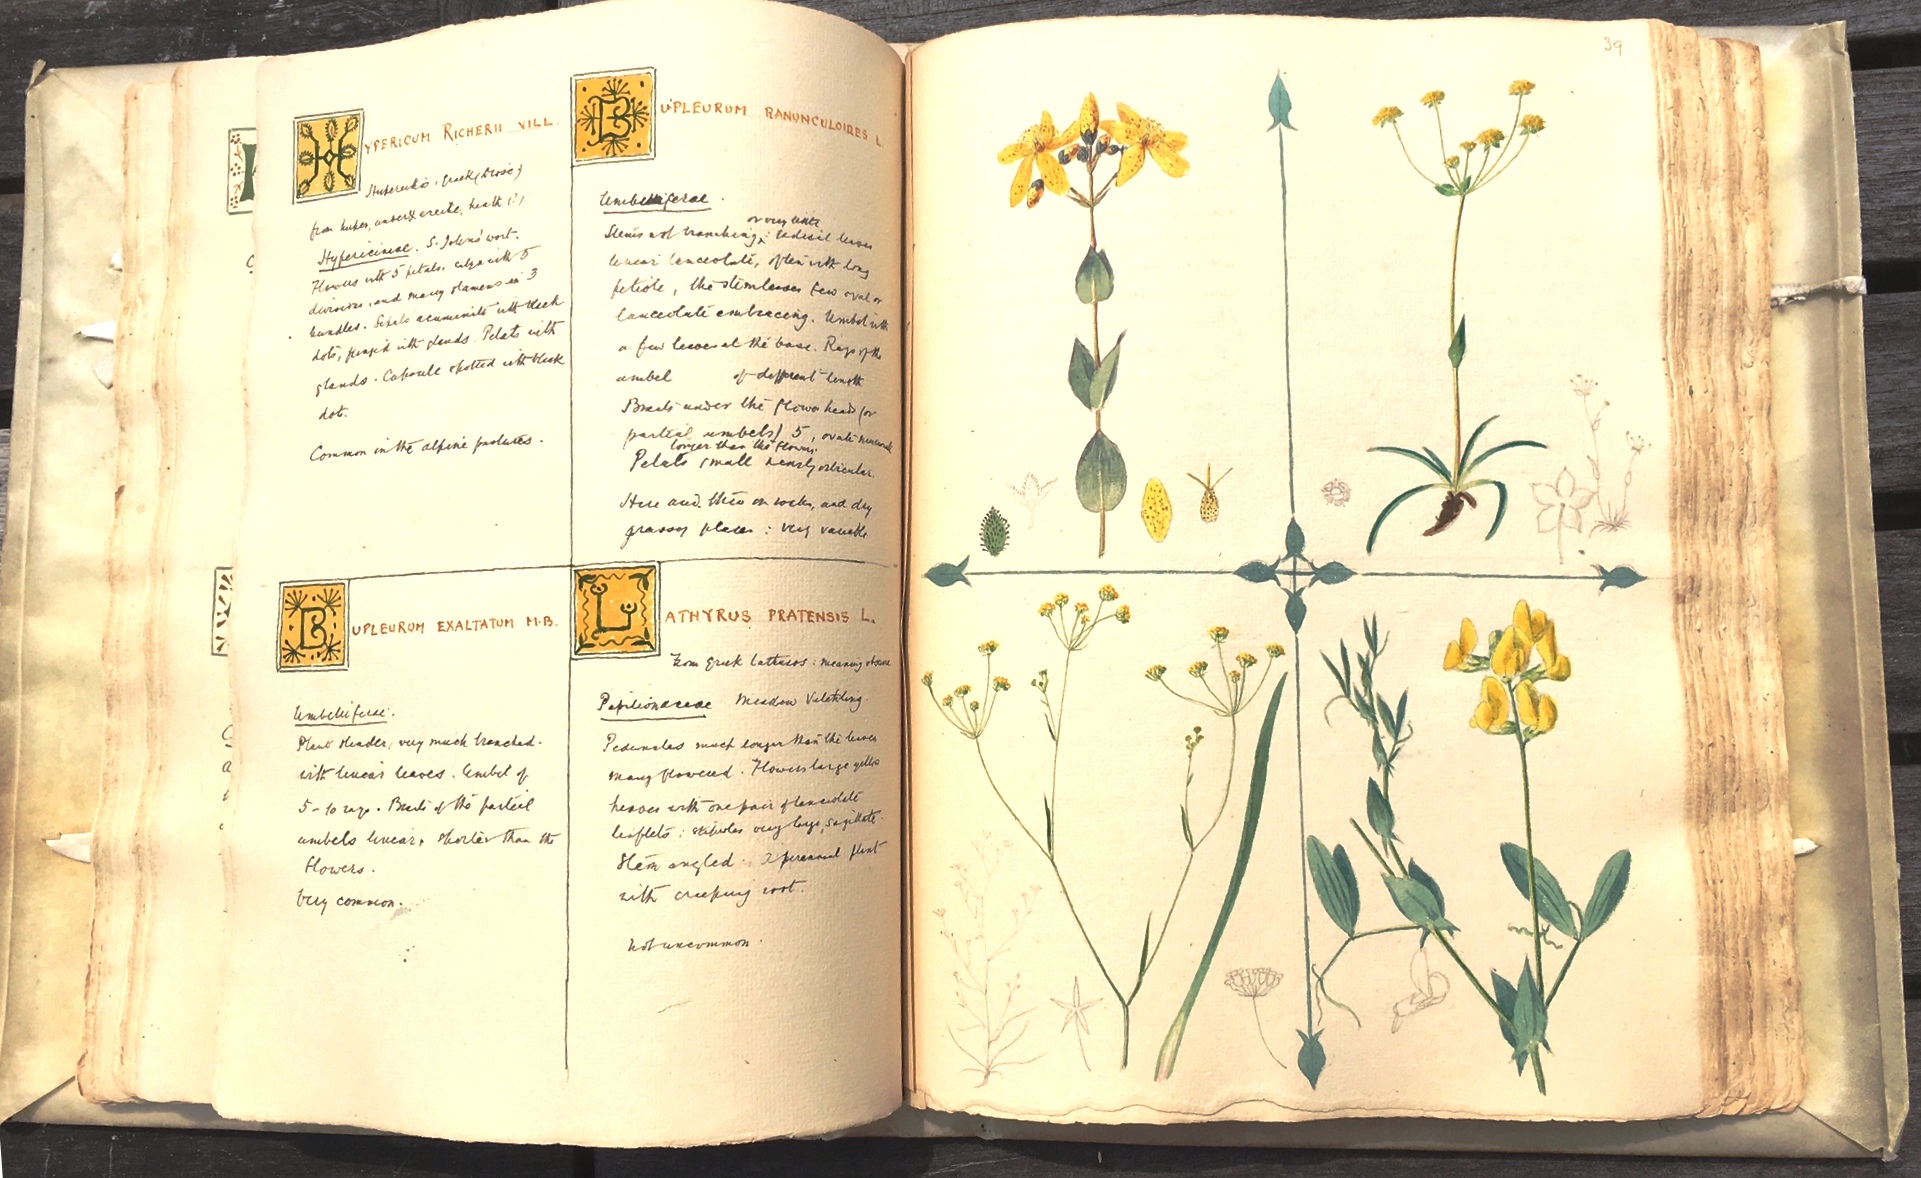 HYPERICUM RICHERII VILL.
Hupereikos, Greek
from huper, under & ereike, heath (?)
Hypericineae. S. John's wort.
Flowers with 5 petals, calyx with 5
divisions, and many stamens in 3
bundles. Sepals acuminate with black
dots, fringed with glands. Petals with
glands. Capsule spotted with black
dot.
Common in the alpine pastures.
BUPLEURUM RANUNCULOIDES L.
Umbelliferae.
or very little
Stems not branching; radical leaves
linear lanceolate, often with long
petiole, the stem leaves few oval or
lanceolate embracing. Umbel with
a few leaves at the base. Rays of the
umbel of different length
Bracts under the flower heads (or
partial umbels) 5, ovate
longer than the flowers.
Petals small nearly orbicular.
Here and there on rocks, and dry
grassy places: very variable
BUPLEURUM EXALTATUM M.B.
Umbelliferae.
Plant slender, very much branched.
with linear leaves. Umbel of
5-10 rays. Bracts of the partial
umbels linear, shorter than the
flowers.
Very common.
LATHYRUS PRATENSIS L.
From Greek lathuros: meaning obscure
Papilionaceae Meadow Vetchling.
Peduncles much longer than the leaves
many flowered. Flowers large yellow
leaves with one pair of lanceolate
leaflets: stipules very large, sagittate.
Stem angled. A perennial plant
with creeping root.
Not uncommon.
39